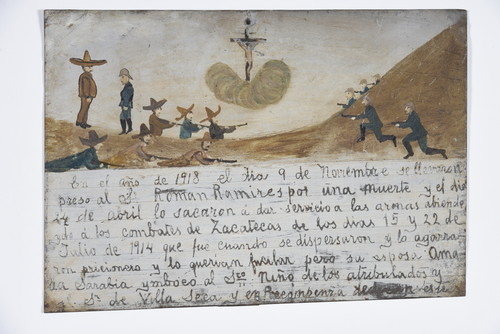 En el año de 1913 el dia 9 de Noviembre se llevaron
preso al S. Roman Ramires por una muerte y el dia
de abril lo sacaron á dar servicio a las armas
á los combates de Zacatecas de los dias 15 y 22 de
Julio de 1914 que fue cuando se dispersaron y lo agarra
ron pricionero y lo querian fucilar pero su esposa Ama
da Sarabia ymboco al Sto Niño de los atribulados y
al Sr de Villa Seca y en Recompenza